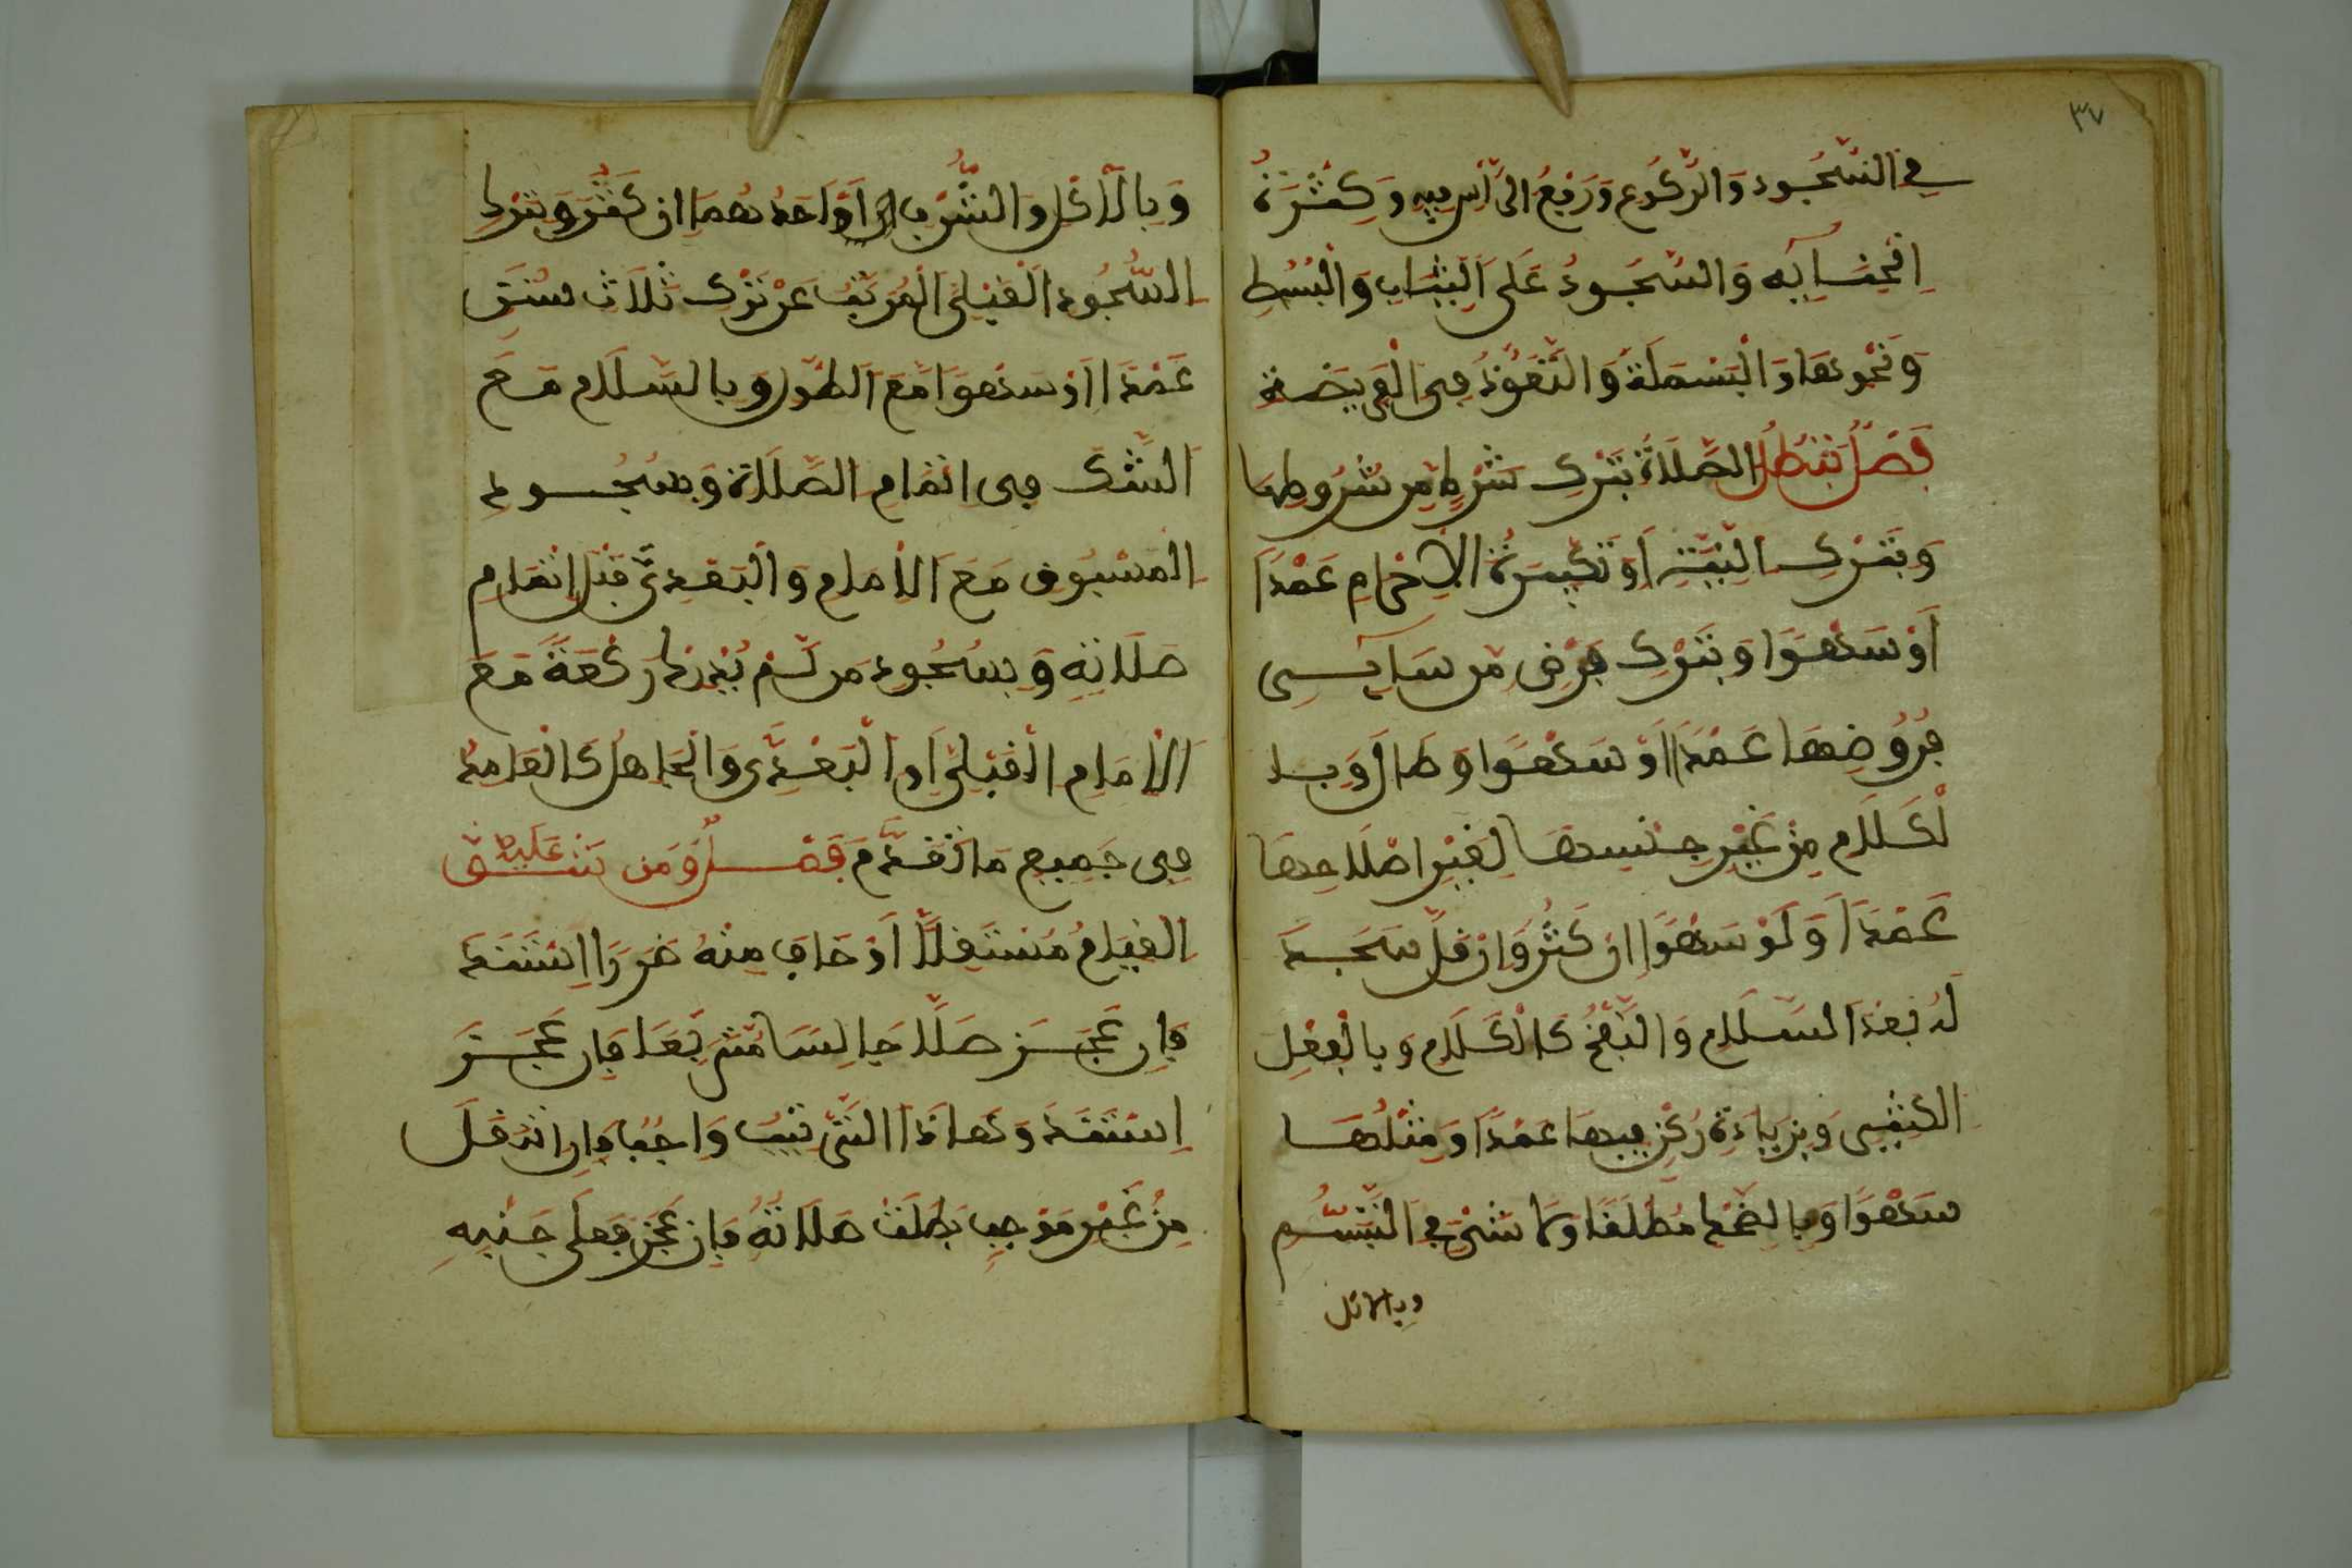 ٣٧
في السُّجُودِ وَالرُّكُوعِ وَرَفْعُ الرَّأْسِ فِيهِ وَكَثْرَةُ
اِنْحِنَآيِهِ وَالسُّجُودُ عَلَى الثِّيَابِ وَالْبُسُطِ
وَنَحْوِهَا وَالْبَسْمَلَةُ وَالتَّعَوُّذُ فِي الْفَرِيضَةِ
فَصْلٌ تَبْطُلُ الصَّلَاةُ بِتَرْكِ شَرْطٍ مِن شُرُوطِهَا
وَبِتَرْكِ النِّيَّةِ أَوْ تَكْبِيرَةِ الْإِحْرَامِ عَمْدًا
أَوْ سَهْوًا وَبِتَرْكِ فَرْضٍ مِن سَآيِرِ
فُرُوضِهَا عَمْدًا أَوْ سَهْوًا وَطَالَ وَبِا
لْكَلَامِ مِنْ غَيْرِ جِنْسِهَا لِغَيْرِ إِصْلَاحِهَا
عَمْدًا وَلَوْ سَهْوًا إِن كَثُرَ وَإِن قَلَّ سَجَدَ
لَهُ بَعْدَ السَّلَامِ وَالنَّفْخُ كَالْكَلَامِ وَبِالْفِعْلِ
الْكَثِيرِ وَبِزِيَادَةِ رُكْنٍ فِيهَا عَمْدًا وَمِثْلُهَا
سَهْوًا وَبِالضَّحْكِ مُطْلَقًا وَلَا شَيْءَ فِي التَّبَسُّمِ
وبالاكل
وَبِالْأَكْلِ وَالشُّرْبِ أَوْ أَحَدُهُمَا إِن كَثُرَ وَبِتَرْكِ
السُّجُودِ الْقَبْلِيِّ الْمُرَتَّبِ عَنْ تَرْكِ ثَلَاثِ سُنَنٍ
عَمْدًا أَوْ سَهْوًا مَعَ الطُّولِ وَبِالسَّلَامِ مَعَ
الشَّكِّ فِي اتْمَامِ الصَّلَاةِ وَبِسُجُودِ
الْمَسْبُوقِ مَعَ الْإِمَامِ وَالْبَعْدِيَّ قَبْلَ إِتْمَامِ
صَلَاتِهِ وَبِسُجُودِ مَن لَّمْ يُدْرِكْ رَكْعَةً مَعَ
الْإِمَامِ الْقَبْلِيِّ أَوِ الْبَعْدِيِّ وَالْجَاهِلُ كَالْعَامِدِ
فِي جَمِيعِ مَا تَقَدَّمَ فَصْلٌ وَمَن شَقَّ عَلَيْهِ
الْقِيَامُ مُسْتَقِلًّا أَوْ خَافَ مِنْهُ ضَرَرًا اِسْتَنَدَ
فَإِن عَجَزَ صَلَّا جَالِسًا مُتَرَبِّعًا فَإِن عَجَزَ
اِسْتَنَدَ وَهَاذَا التَّرْتِيبُ وَاجِبًا فَإِنِ انْتَقَلَ
مِنْ غَيْرِ مُوجِبٍ بَطَلَتْ صَلَاتُهُ فَإِن عَجَزَ فَعَلَى جَنْبِهِ